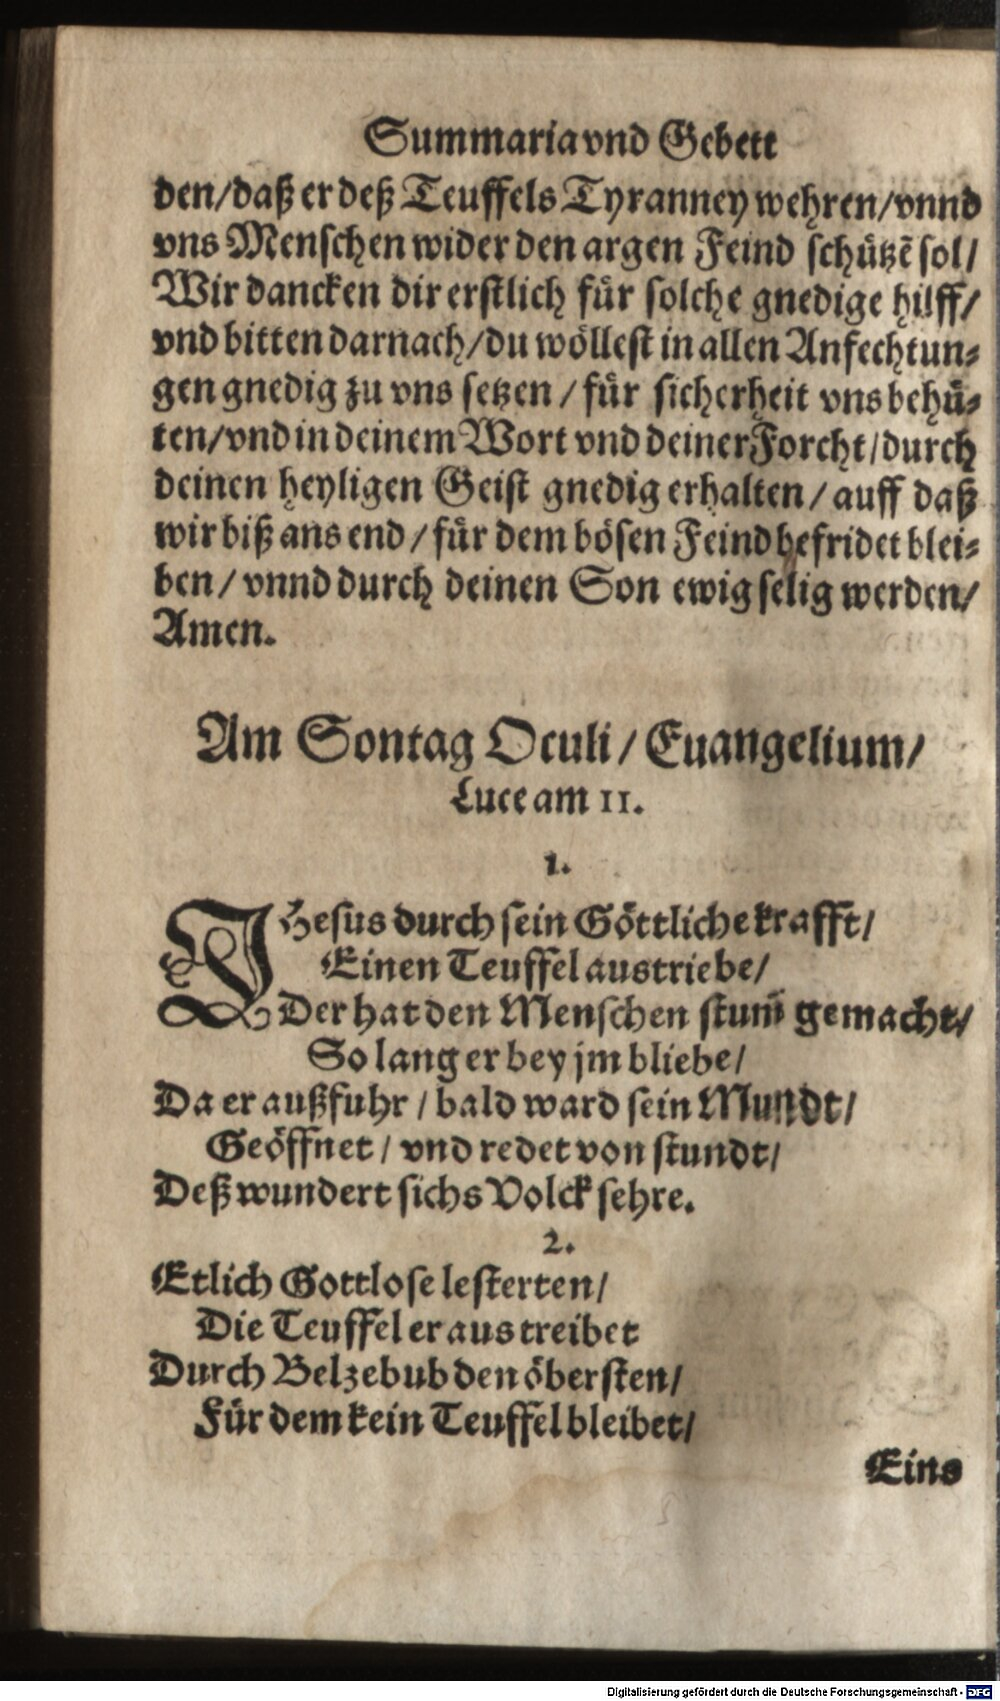 Summaria vnd Gebett
den/ daß er deß Teuffels Tyranney wehren/ vnnd
vns Menschen wider den argen Feind schützẽ sol/
Wir dancken dir erstlich für solche gnedige hilff/
vnd bitten darnach/ du wöllest in allen Anfechtun-
gen gnedig zu vns setzen/ für sicherheit vns behü-
ten/ vnd in deinem Wort vnd deiner Forcht/ durch
deinen heyligen Geist gnedig erhalten/ auff daß
wir biß ans end/ für dem bösen Feind befridet blei-
ben/ vnnd durch deinen Son ewig selig werden/
Amen.
Am Sontag Oculi/ Euangelium/
Luce am 11.
1.
JHesus durch sein Göttliche krafft/
Einen Teuffel austriebe/
Der hat den Menschen stum̃ gemacht/
So lang er bey jm bliebe/
Da er außfuhr/ bald ward sein Mundt/
Geöffnet/ vnd redet von stundt/
Deß wundert sichs Volck sehre.
2.
Etlich Gottlose lesterten/
Die Teuffel er austreibet
Durch Belzebub den öbersten/
Für dem kein Teuffel bleibet/
Eins
Digitalisierung gefördert durch die Deutsche Forschungsgemeinschaft - DFG